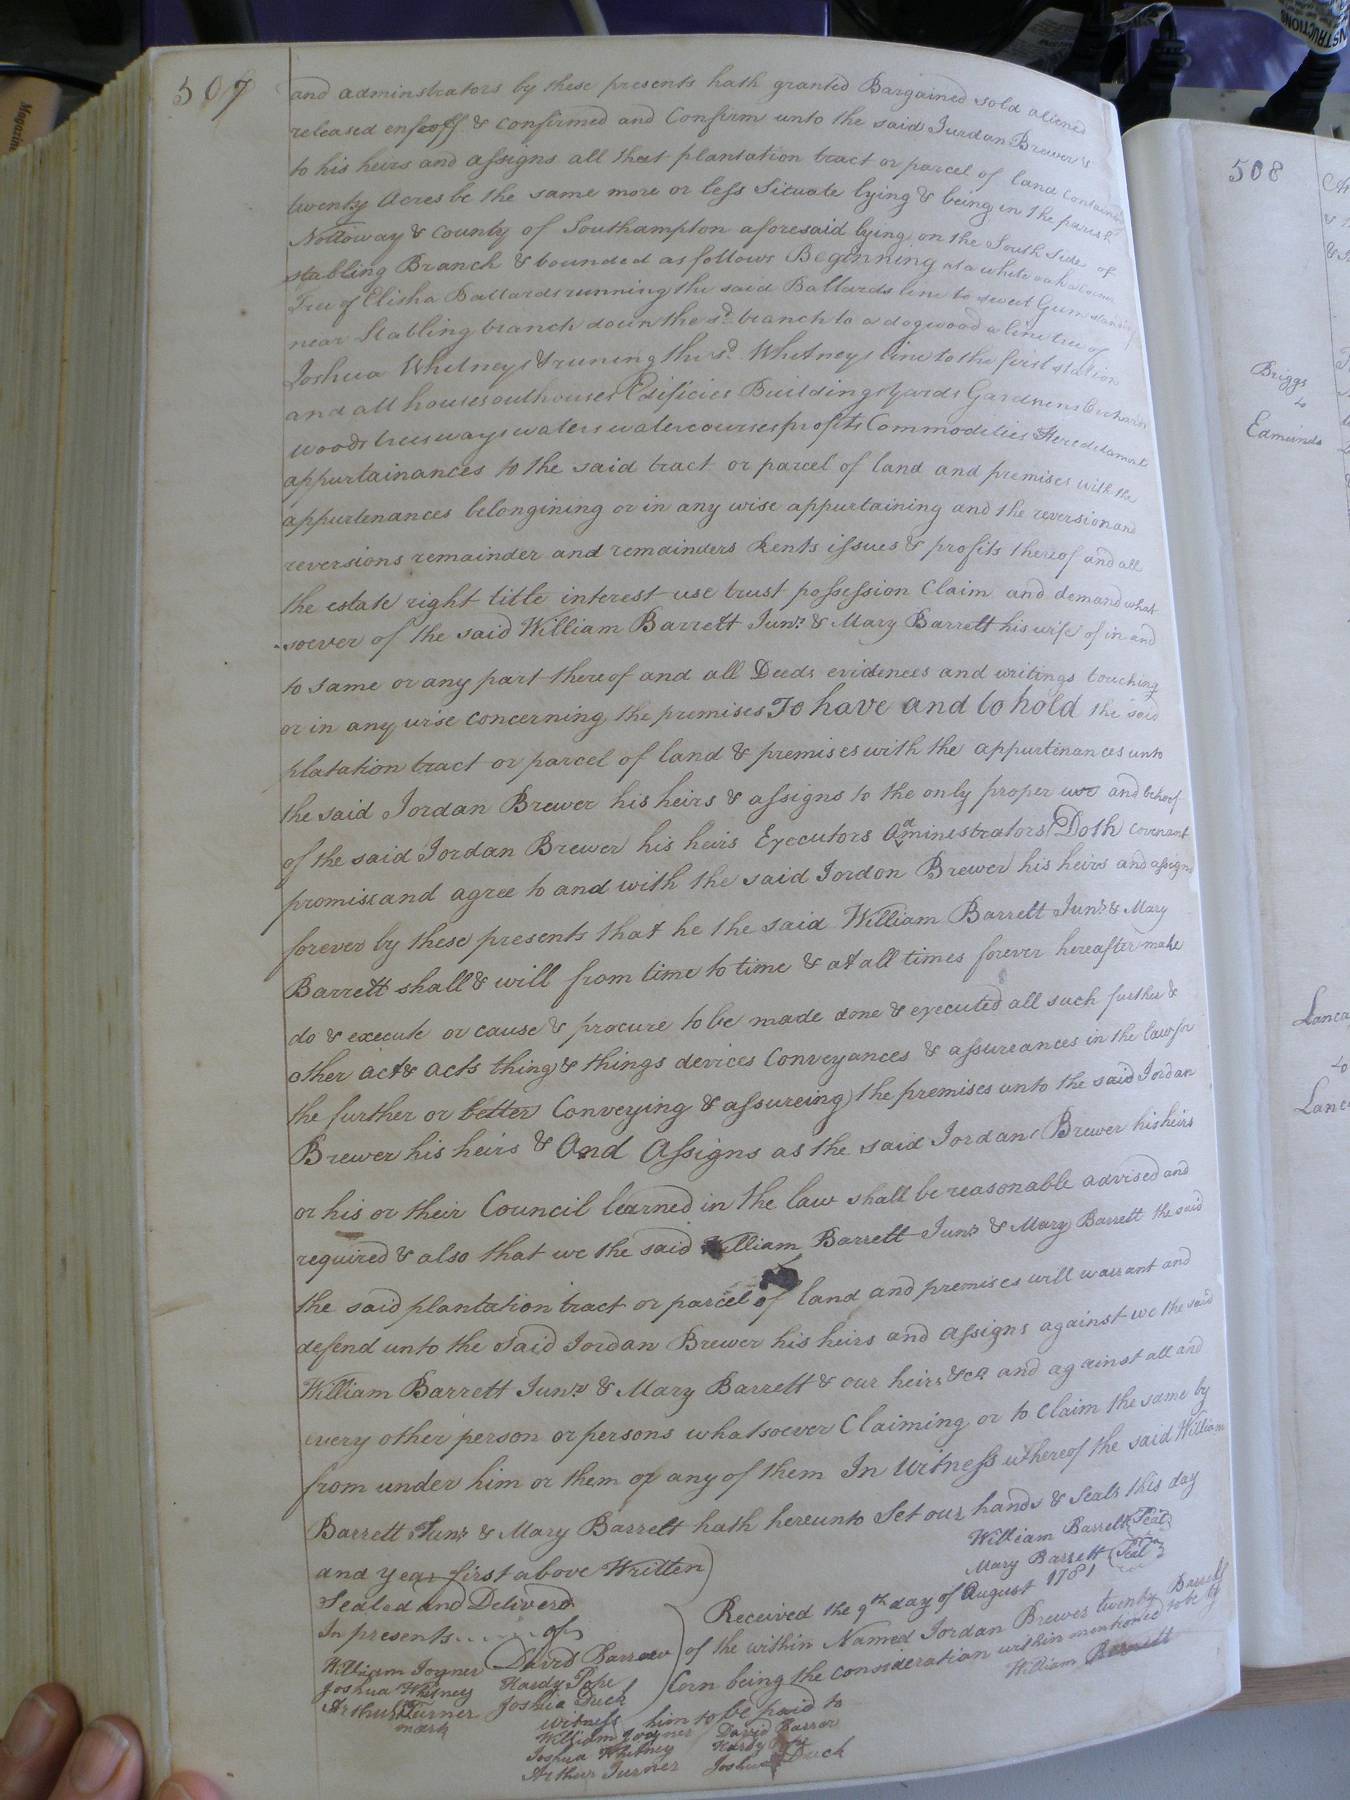 507
and adminstrators by these presents hath granted Bargained sold aliened
released enfeoff & confirmed and Confirm unto the said Jurdan Brewer &
to his heirs and assigns all that plantation tract or parcel of land containing
twenty Acres be the same more or less Situate lying & being in the parish
Nottoway & county of Southampton aforesaid lying on the South Side of
stabling Branch & bounded as follows Beginning at a white oak a corner
Tree of Elisha Ballards running the said Ballards line to sweet Gum standing
near Stabling branch down the sd. branch to a dogwood a line tree of
Joshua Whitneys & runing the sd. Whitneys line to the first station
and all houses outhouses Edificies Buildings Yards Gardnens Orchards
woods trees ways waters watercourses profits Commodities Hereditament
appurtainances to the said tract or parcel of land and premises with the
appurtenances belongining or in any wise appurtaining and the reversion and
reversions remainder and remainders Rents issues & profits thereof and all
the estate right title interest use trust possession Claim and demand what
soever of the said William Barrett Junr. & Mary Barrett his wife of in and
to same or any part thereof and all Deeds evidences and writings touching
or in any wise concerning the premises To have and to hold the said
platation tract or parcel of land & premises with the appurtinances unto
the said Jordan Brewer his heirs & assigns to the only proper use and behoof
of the said Jordan Brewer his heirs Executors Administrators Doth covenant
promise and agree to and with the said Jordon Brewer his heirs and assigns
forever by these presents that he the said William Barrett Junr. & Mary
Barrett shall & will from time to time & at all times forever hereafter make
do & execute or cause & procure to be made done & executed all such further &
other act & acts thing & things devices Conveyances & assureances in the law for
the further or better Conveying & assureing the premises unto the said Jordan
Brewer his heirs & And Assigns as the said Jordan Brewer his heirs
or his or their Council learned in the law shall be reasonable advised and
required & also that we the said William Barrett Junr. & Mary Barrett the said
the said plantation tract or parcel of land and premises will warrant and
defend unto the Said Jordan Brewer his heirs and assigns against we the said
William Barrett Junr. & Mary Barrett & our heirs &ca and against all and
every other person or persons whatsoever Claiming or to Claim the same by
from under him or them or any of them In Witness whereof the said William
Barrett Junr. & Mary Barrett hath hereunto Set our hands & Seals this day
and year first above Written
William Barrett Seal
Mary Barrett Seal
Sealed and Deliverd
In presents of
William Joyner David Barrow
Joshua Whitney Hardy Pope
Arthur Turner Joshua Duck
mark
Received the 9th day of August 1781
of the within Named Jordan Brewer twenty Barrels
Corn being the consideration within mentioned to be by
him to be paid to
William Barrett
witness
William Joyner David Barrow
Joshua Whitney Hardy Pope
Arthur Turner Joshua Duck
508
Briggs
to
Edmunds
Lanca
to
Lanc
Magazine